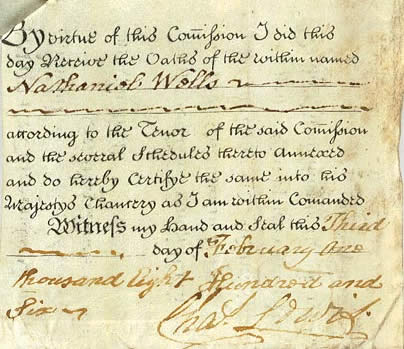 By virtue of this Comission I did this
day Receive the Oaths of the within named
Nathaniel Wells
according to the Tenor of the said Comission
and the several Schedules thereto Annexed
and do hereby Certifye the same into his
Majestys Chancery as I am within Comanded
Witness my Hand and Seal this Third
day of February One
thousand Eight Hundred and
Six
Chas.